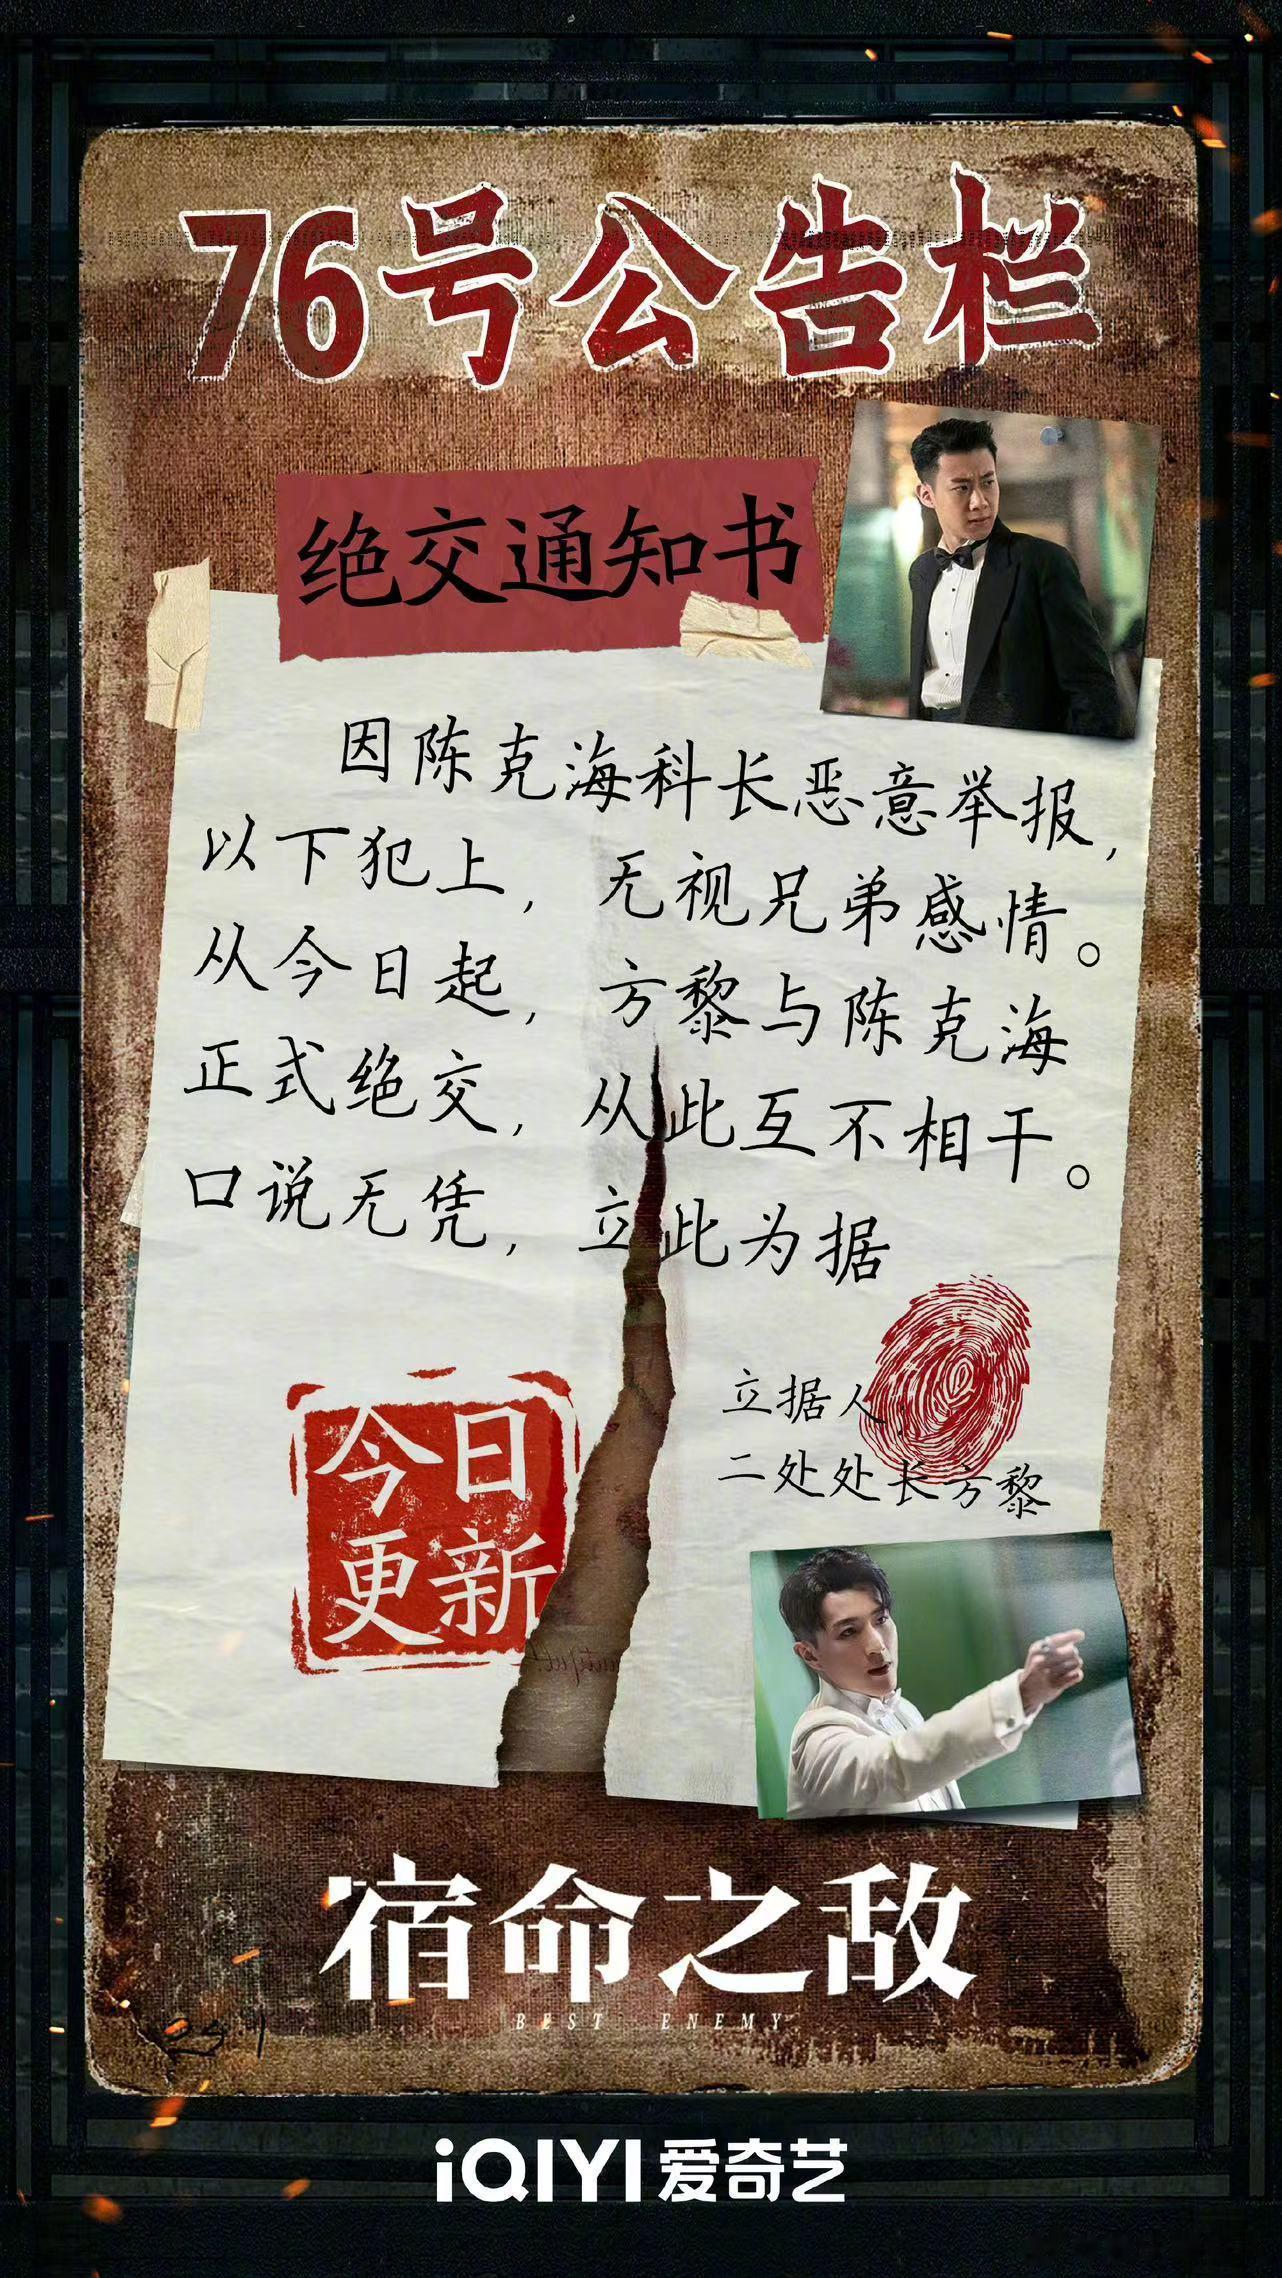 76号公告栏
绝交通知书
因陈克海科长恶意举报，
以下犯上，无视兄弟感情。
从今日起，方黎与陈克海
正式绝交，从此互不相干。
口说无凭，立此为据
立据人：
二处处长方黎
今日
更新
宿命之敌
BEST ENEMY
iQIYI 爱奇艺